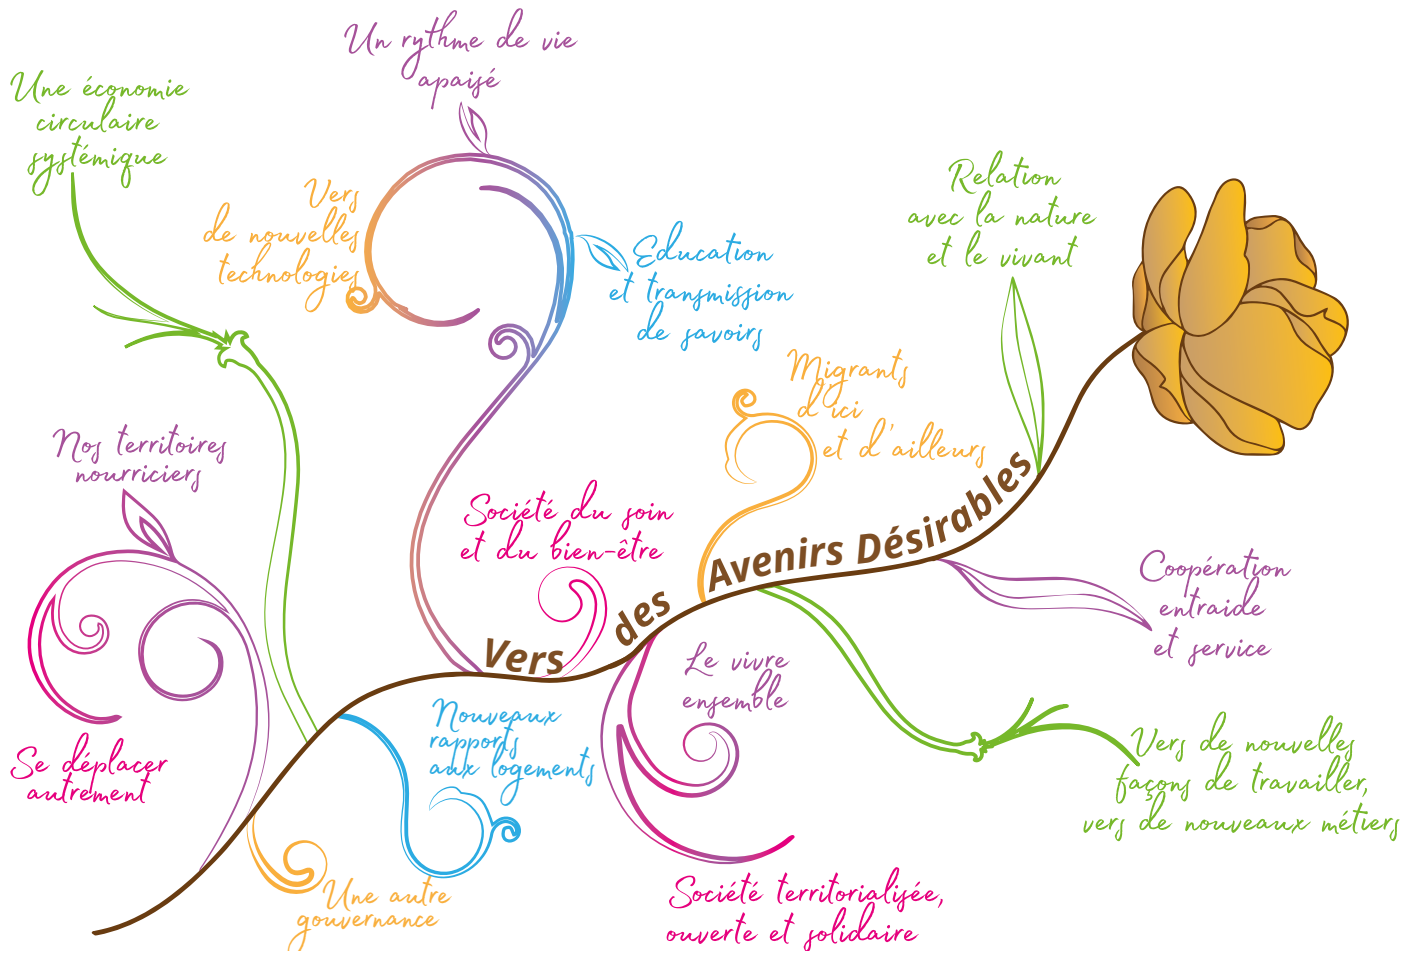 Un rythme de vie
apaisé
Une économie
circulaire
systémique
Vers
de nouvelles
technologies
Education
et transmission
de savoirs
Relation
avec la nature
et le vivant
Migrants
d'ici
et d'ailleurs
Nos territoires
nourriciers
Société du soin
et du bien-être
Vers des Avenirs Désirables
Coopération
entraide
et service
Le vivre
ensemble
Nouveaux
rapports
aux logements
Se déplacer
autrement
Vers de nouvelles
façons de travailler,
vers de nouveaux métiers
Une autre
gouvernance
Société territorialisée,
ouverte et solidaire